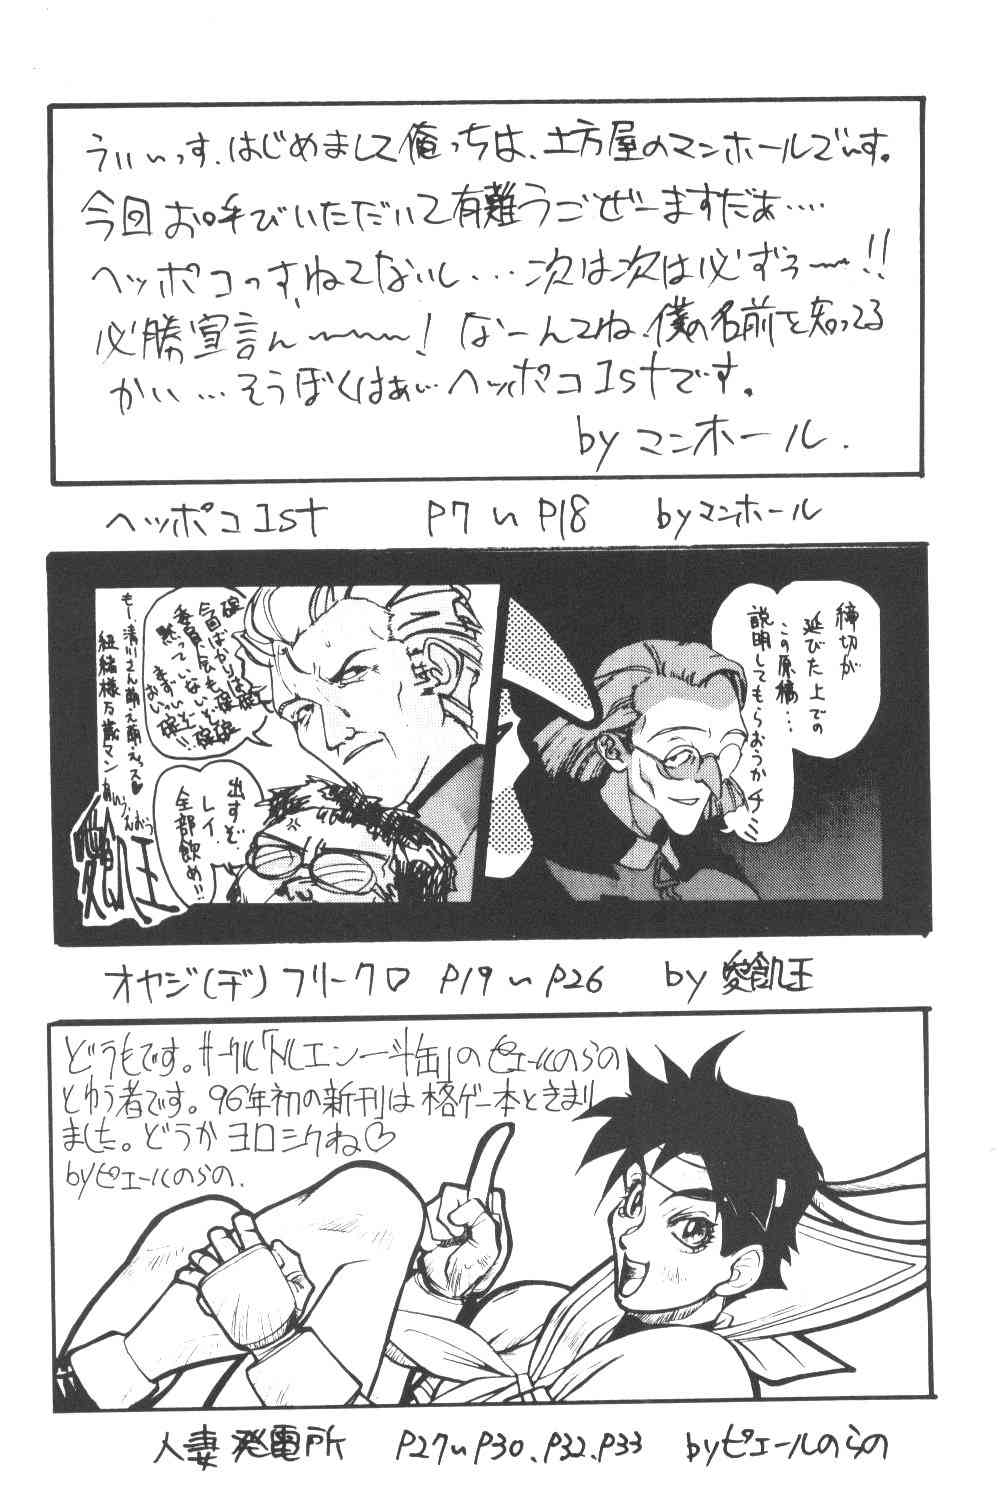 うぃぃっす、はじめまして俺っちは、土方屋のマンホールでぃす。
今回お呼びいただいて有難うごぜーますだぁ....
ヘッポコっすねてないし...次は次は必ずぅ〜!!
必勝宣言ん〜〜〜! なーんてね、僕の名前を知ってる
かい...そうぼくはぁぃ〜ヘッポコ1stです。
by マンホール.
ヘッポコ1st P7〜P18 byマンホール
締切が
延びた上での
この原稿...
説明してもらおうかチミ
今回ばかりは
委員会も
黙っていないぞ
もー清川さん萌え萌えっス♡
紐緒様万歳マン
あいうえおう
愛飢王
出すぞ
レイ.
全部飲め!!
オヤジ(ヂ)フリークロ♡ P19〜P26 by 愛飢王
どうもです。サークル「トルエン一斗缶」のピエールのらの
とゆう者です。96年初の新刊は格ゲー本ときまり
ました。どうかヨロシクね♡
byピエールのらの.
人妻発電所 P27〜P30、P32、P33 byピエールのらの